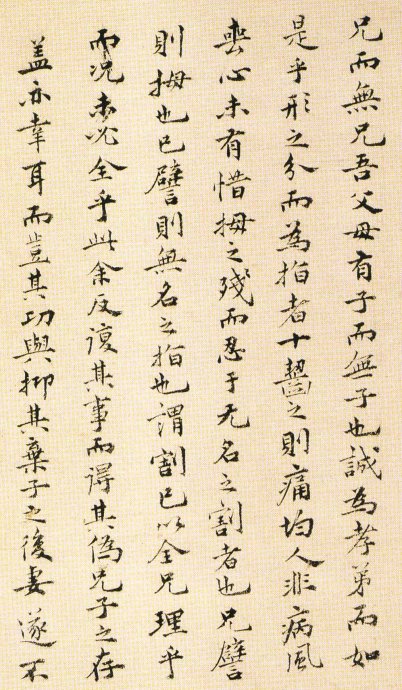 兄而無兄吾父母有子而無子也誠為孝弟而如
是乎形之分而為指者十齧之則痛均人非病風
喪心未有惜拇之殘而忍于无名之割者也兄譬
則拇也已譬則無名之指也謂割已以全兄理乎
而況未必全乎此余反復其事而得其偽兄子之存
盖亦幸耳而豈其功與抑其棄子之後妻遂不